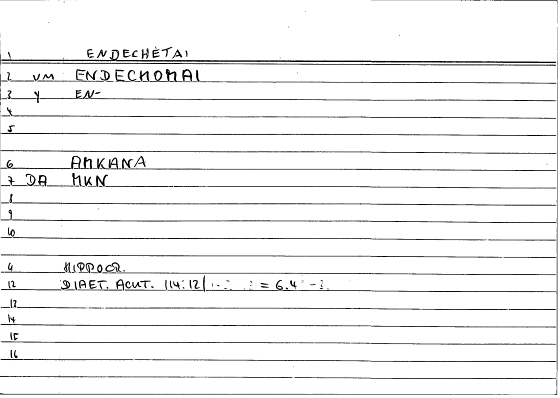 1 ENDECHETAI
2 VM ENDECHOMAI
3 Y EN-
4
5
6 AMKANA
7 DA MKN
8
9
10
11 HIPPOCR.
12 DIAET. ACUT. 114.12 = 6.4
13
14
15
16